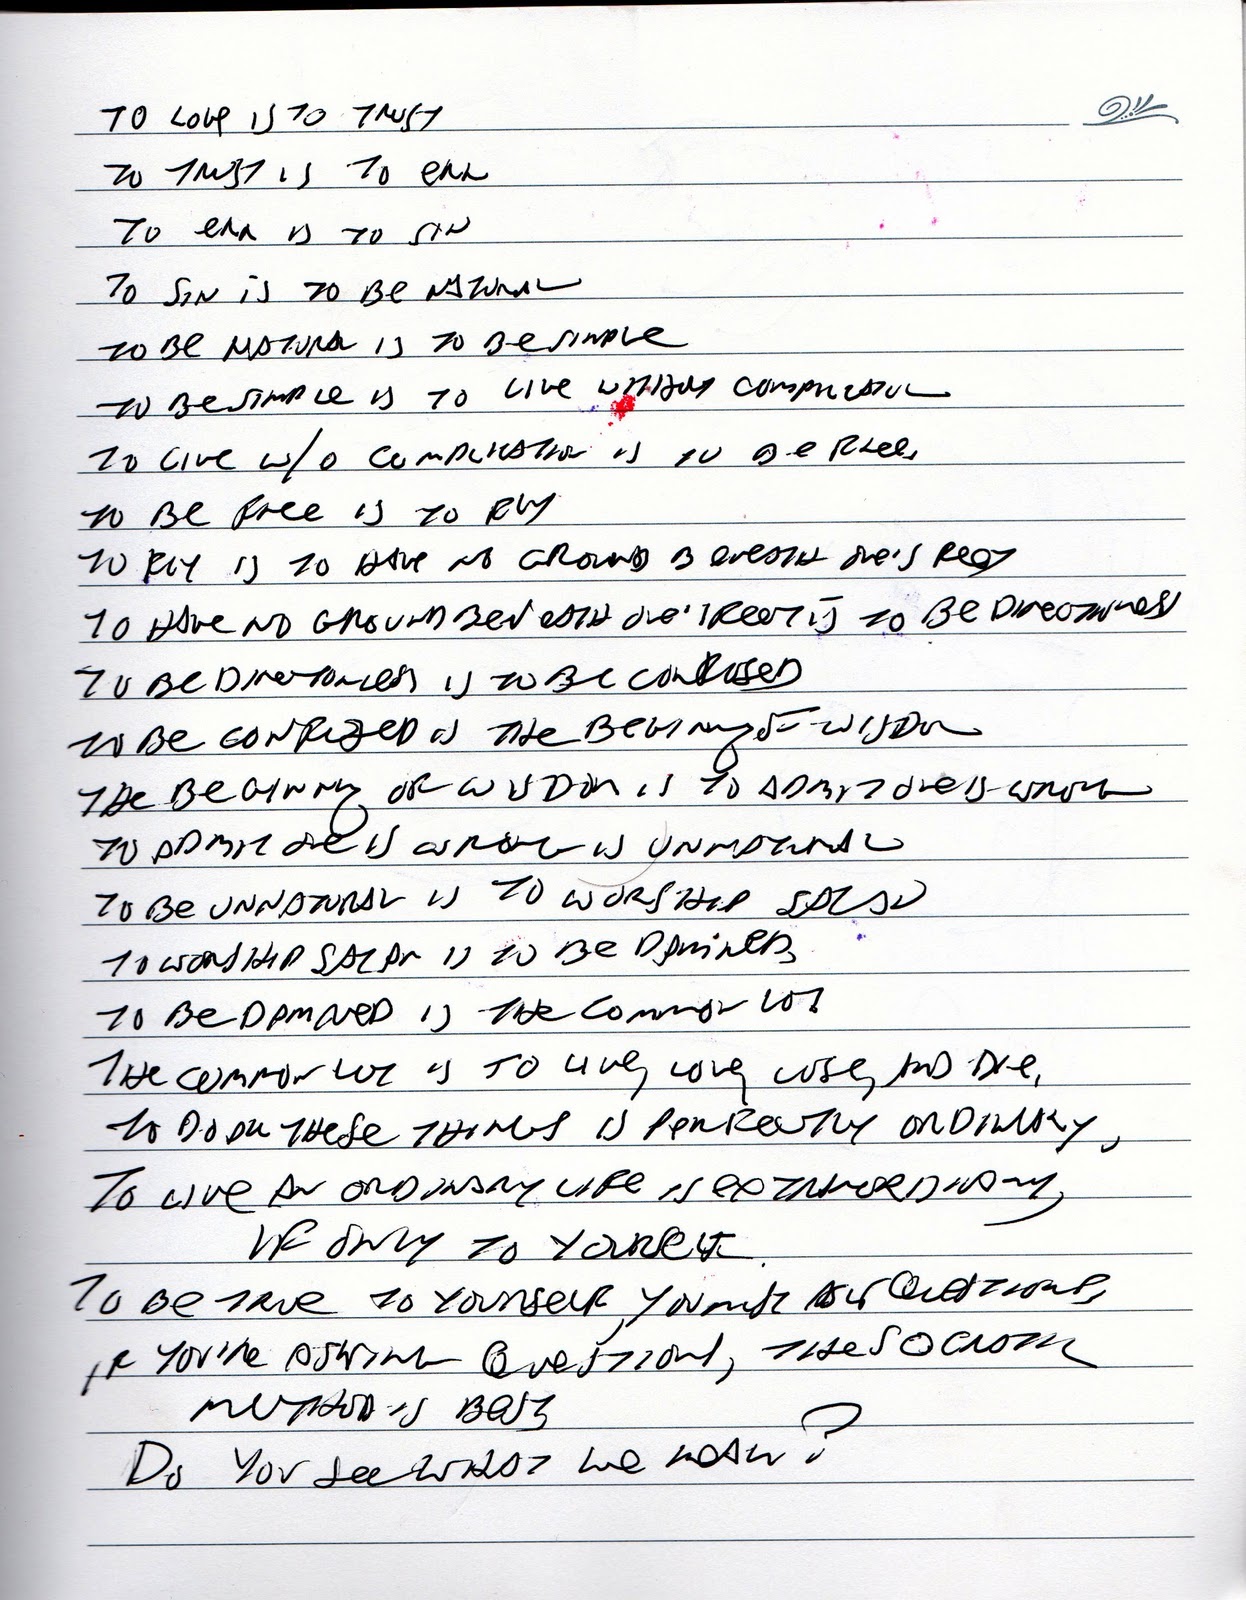 TO LOVE IS TO TRUST
TO TRUST IS TO ERR
TO ERR IS TO SIN
TO SIN IS TO BE NATURAL
TO BE NATURAL IS TO BE SIMPLE
TO BE SIMPLE IS TO LIVE WITHOUT COMPLICATION
TO LIVE W/O COMPLICATION IS TO BE FREE,
TO BE FREE IS TO FLY
TO FLY IS TO HAVE NO GROUND BENEATH ONE'S FEET
TO HAVE NO GROUND BENEATH ONE'S FEET IS TO BE DIRECTIONLESS
TO BE DIRECTIONLESS IS TO BE CONFUSED
TO BE CONFUSED IS THE BEGINNING OF WISDOM
THE BEGINNING OF WISDOM IS TO ADMIT ONE IS WRONG
TO ADMIT ONE IS WRONG IS UNNATURAL
TO BE UNNATURAL IS TO WORSHIP SATAN
TO WORSHIP SATAN IS TO BE DAMNED
TO BE DAMNED IS THE COMMON LOT
THE COMMON LOT IS TO LIVE, LOVE, LOSE, AND DIE,
TO DO ALL THESE THINGS IS PERFECTLY ORDINARY,
TO LIVE AN ORDINARY LIFE IS EXTRAORDINARY,
IF ONLY TO YOURSELF.
TO BE TRUE TO YOURSELF, YOU MUST ASK QUESTIONS,
IF YOU'RE ASKING QUESTIONS, THE SOCRATIC
METHOD IS BEST
DO YOU SEE WHAT WE MEAN?